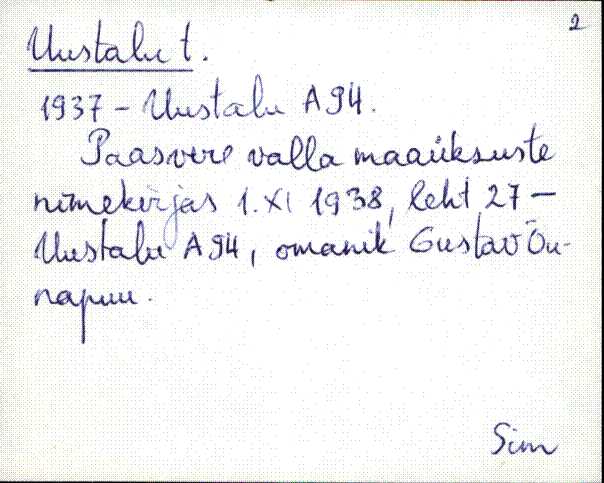 2
Uustalu t.
1937 - Uustalu A94.
Paasvere valla maaüksuste
nimekirjas 1. XI 1938, leht 27 -
Uustalu A94, omanik Gustav Õu-
napuu.
Sim